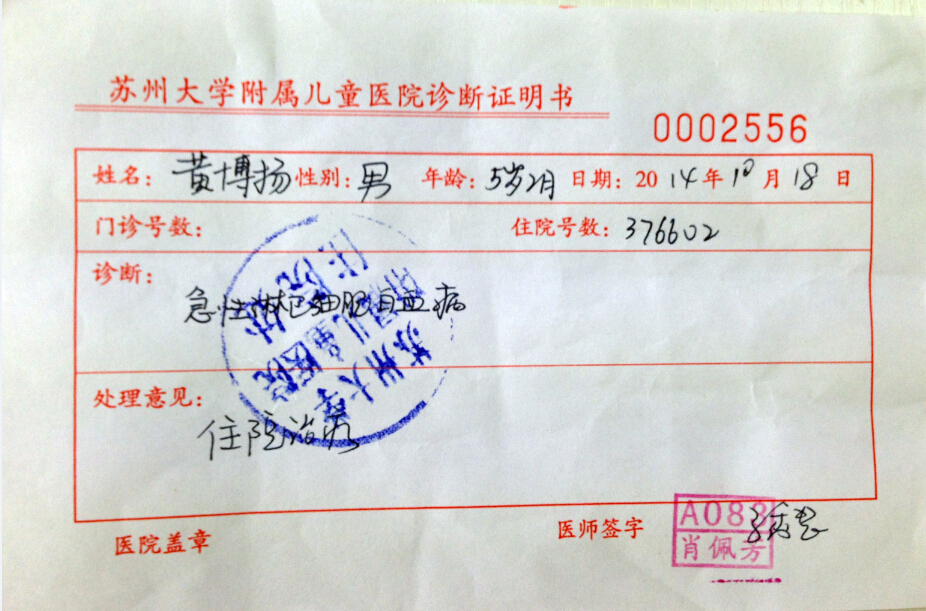 苏州大学附属儿童医院诊断证明书
0002556
姓名：黄博扬 性别：男 年龄：5岁2月 日期：2014年10月18日
门诊号数： 住院号数：376602
诊断：
急性淋巴细胞白血病
苏州大学
附属儿童医院
住院
处理意见：
住院治疗
医院盖章 医师签字
A088
肖佩芳